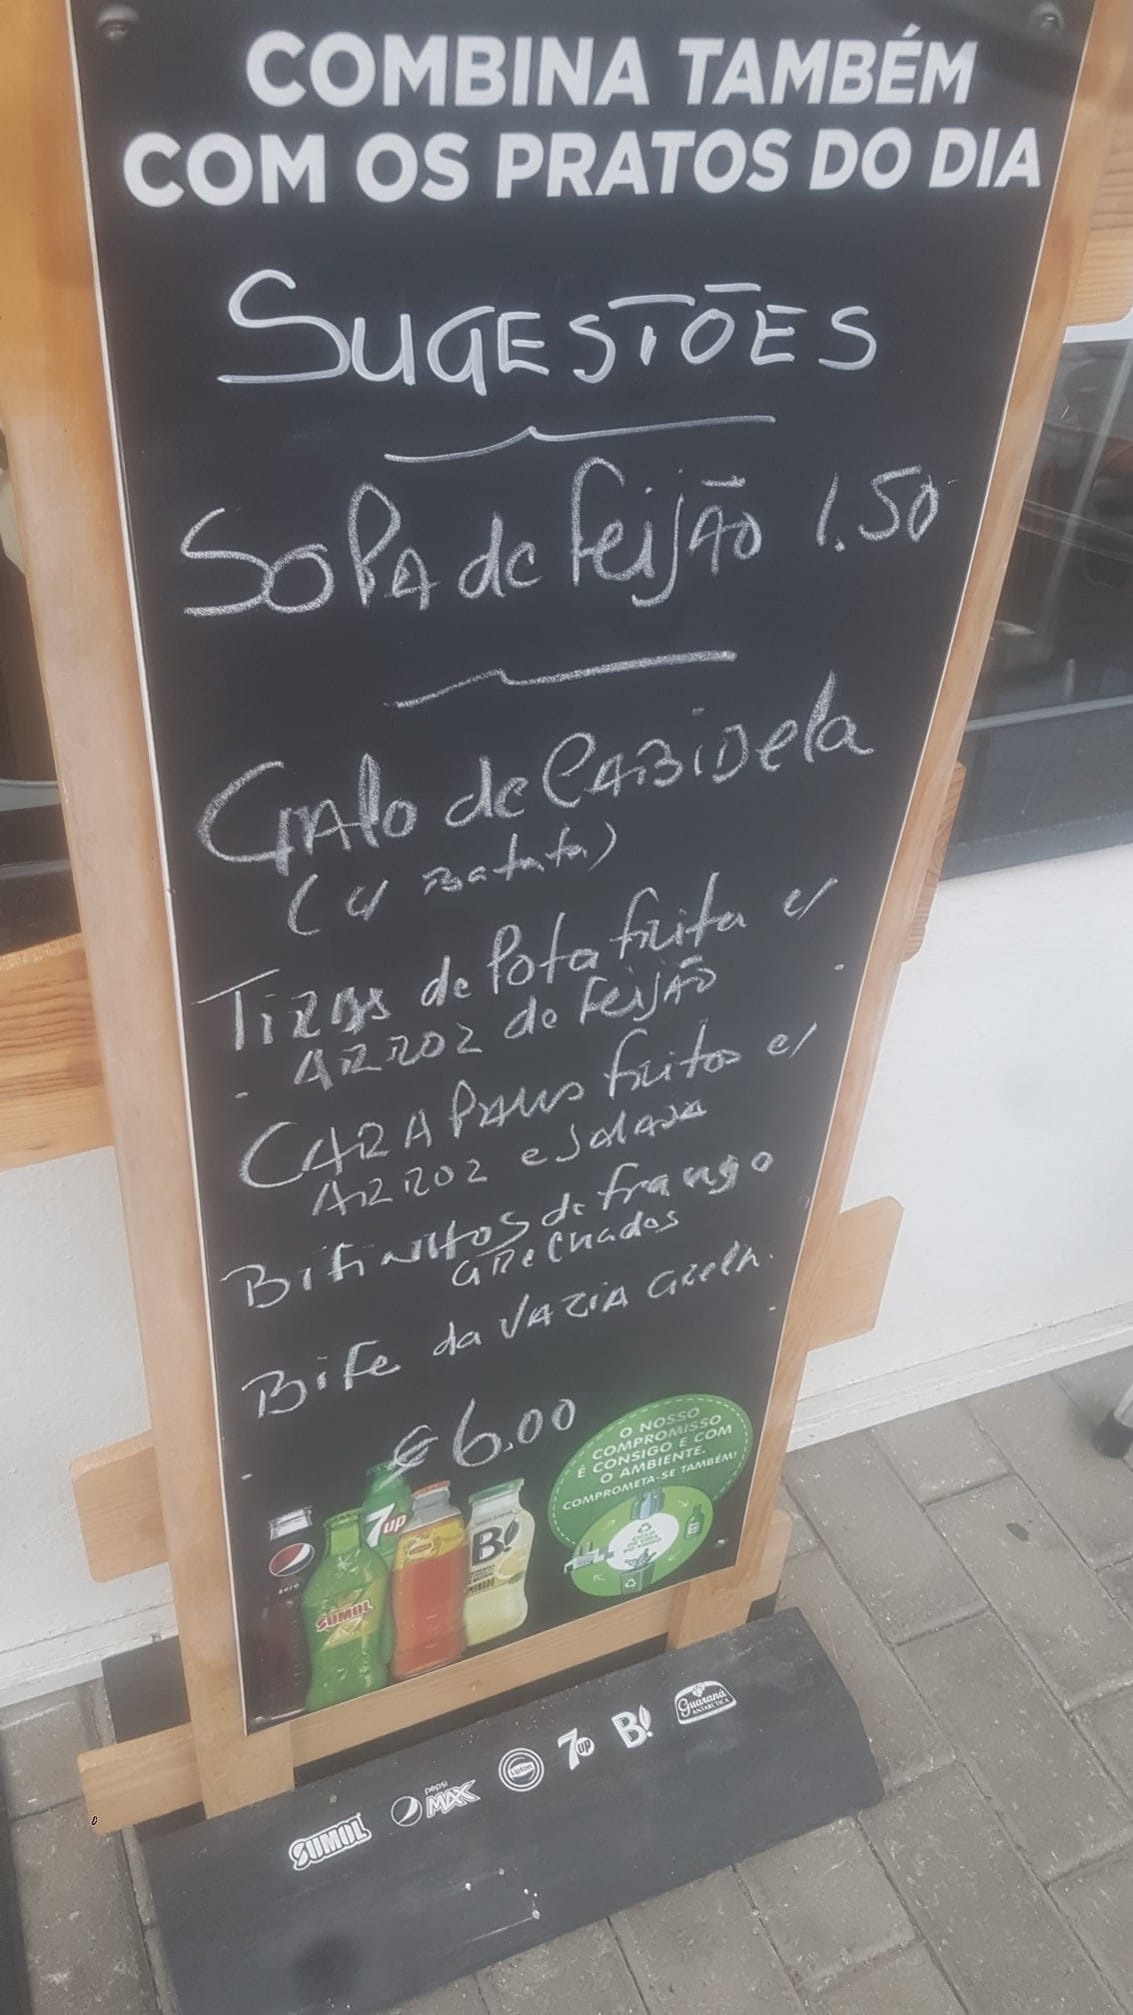 COMBINA TAMBÉM
COM OS PRATOS DO DIA
SUGESTÕES
SOPA de feijÃO 1.50
GAlo de CABiDela
(c/ Batata)
TiRAS de Pota frita c/
ARROZ de feijÃO
CARAPAUS fritos c/
ARROZ e SALADA
BifiNHOS de frango
GRELHADOS
Bife da VAZIA GRELH.
€6.00
O NOSSO
COMPROMISSO
É CONSIGO E COM
O AMBIENTE.
COMPROMETA-SE TAMBÉM!
7up
B!
Lipton
zero
SUMOL
SUMOL
pepsi
MAX
Lipton
7up
B!
Guaraná
ANTARCTICA